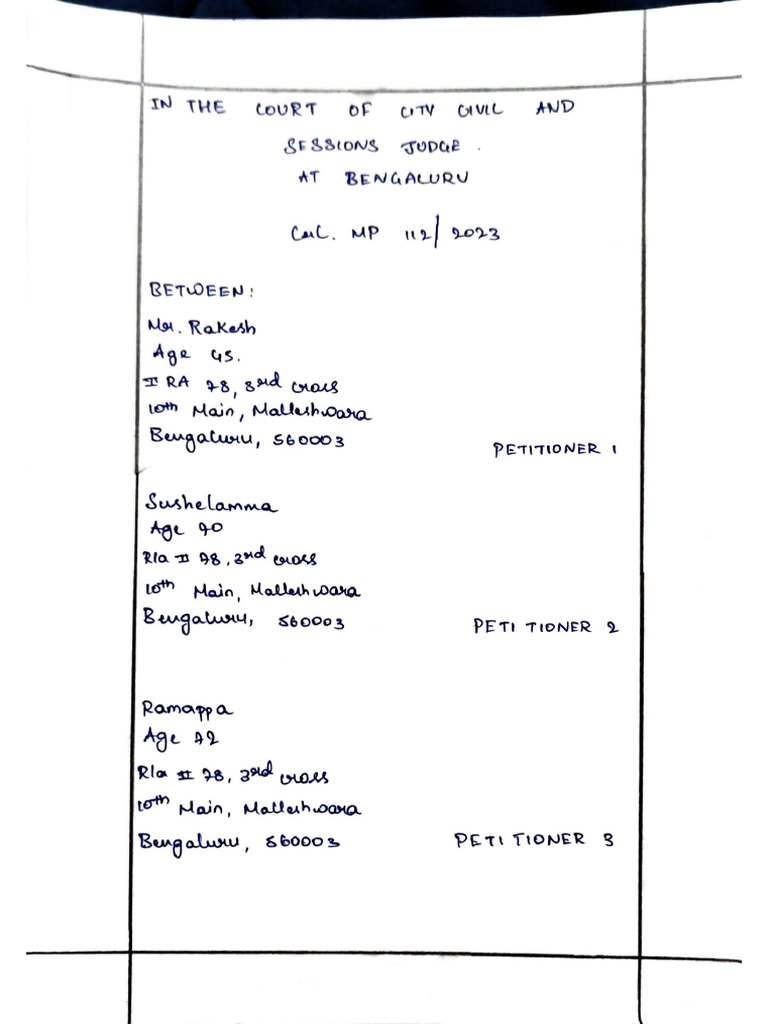 IN THE COURT OF CITY CIVIL AND
SESSIONS JUDGE.
AT BENGALURU
Crl. MP 112/2023
BETWEEN:
Mr. Rakesh
Age 45.
# RA 78, 3rd cross
10th Main, Malleshwara
Bengaluru, 560003
PETITIONER 1
Sushelamma
Age 70
R/a # 78, 3rd cross
10th Main, Malleshwara
Bengaluru, 560003
PETITIONER 2
Ramappa
Age 72
R/a # 78, 3rd cross
10th Main, Malleshwara
Bengaluru, 560003
PETITIONER 3